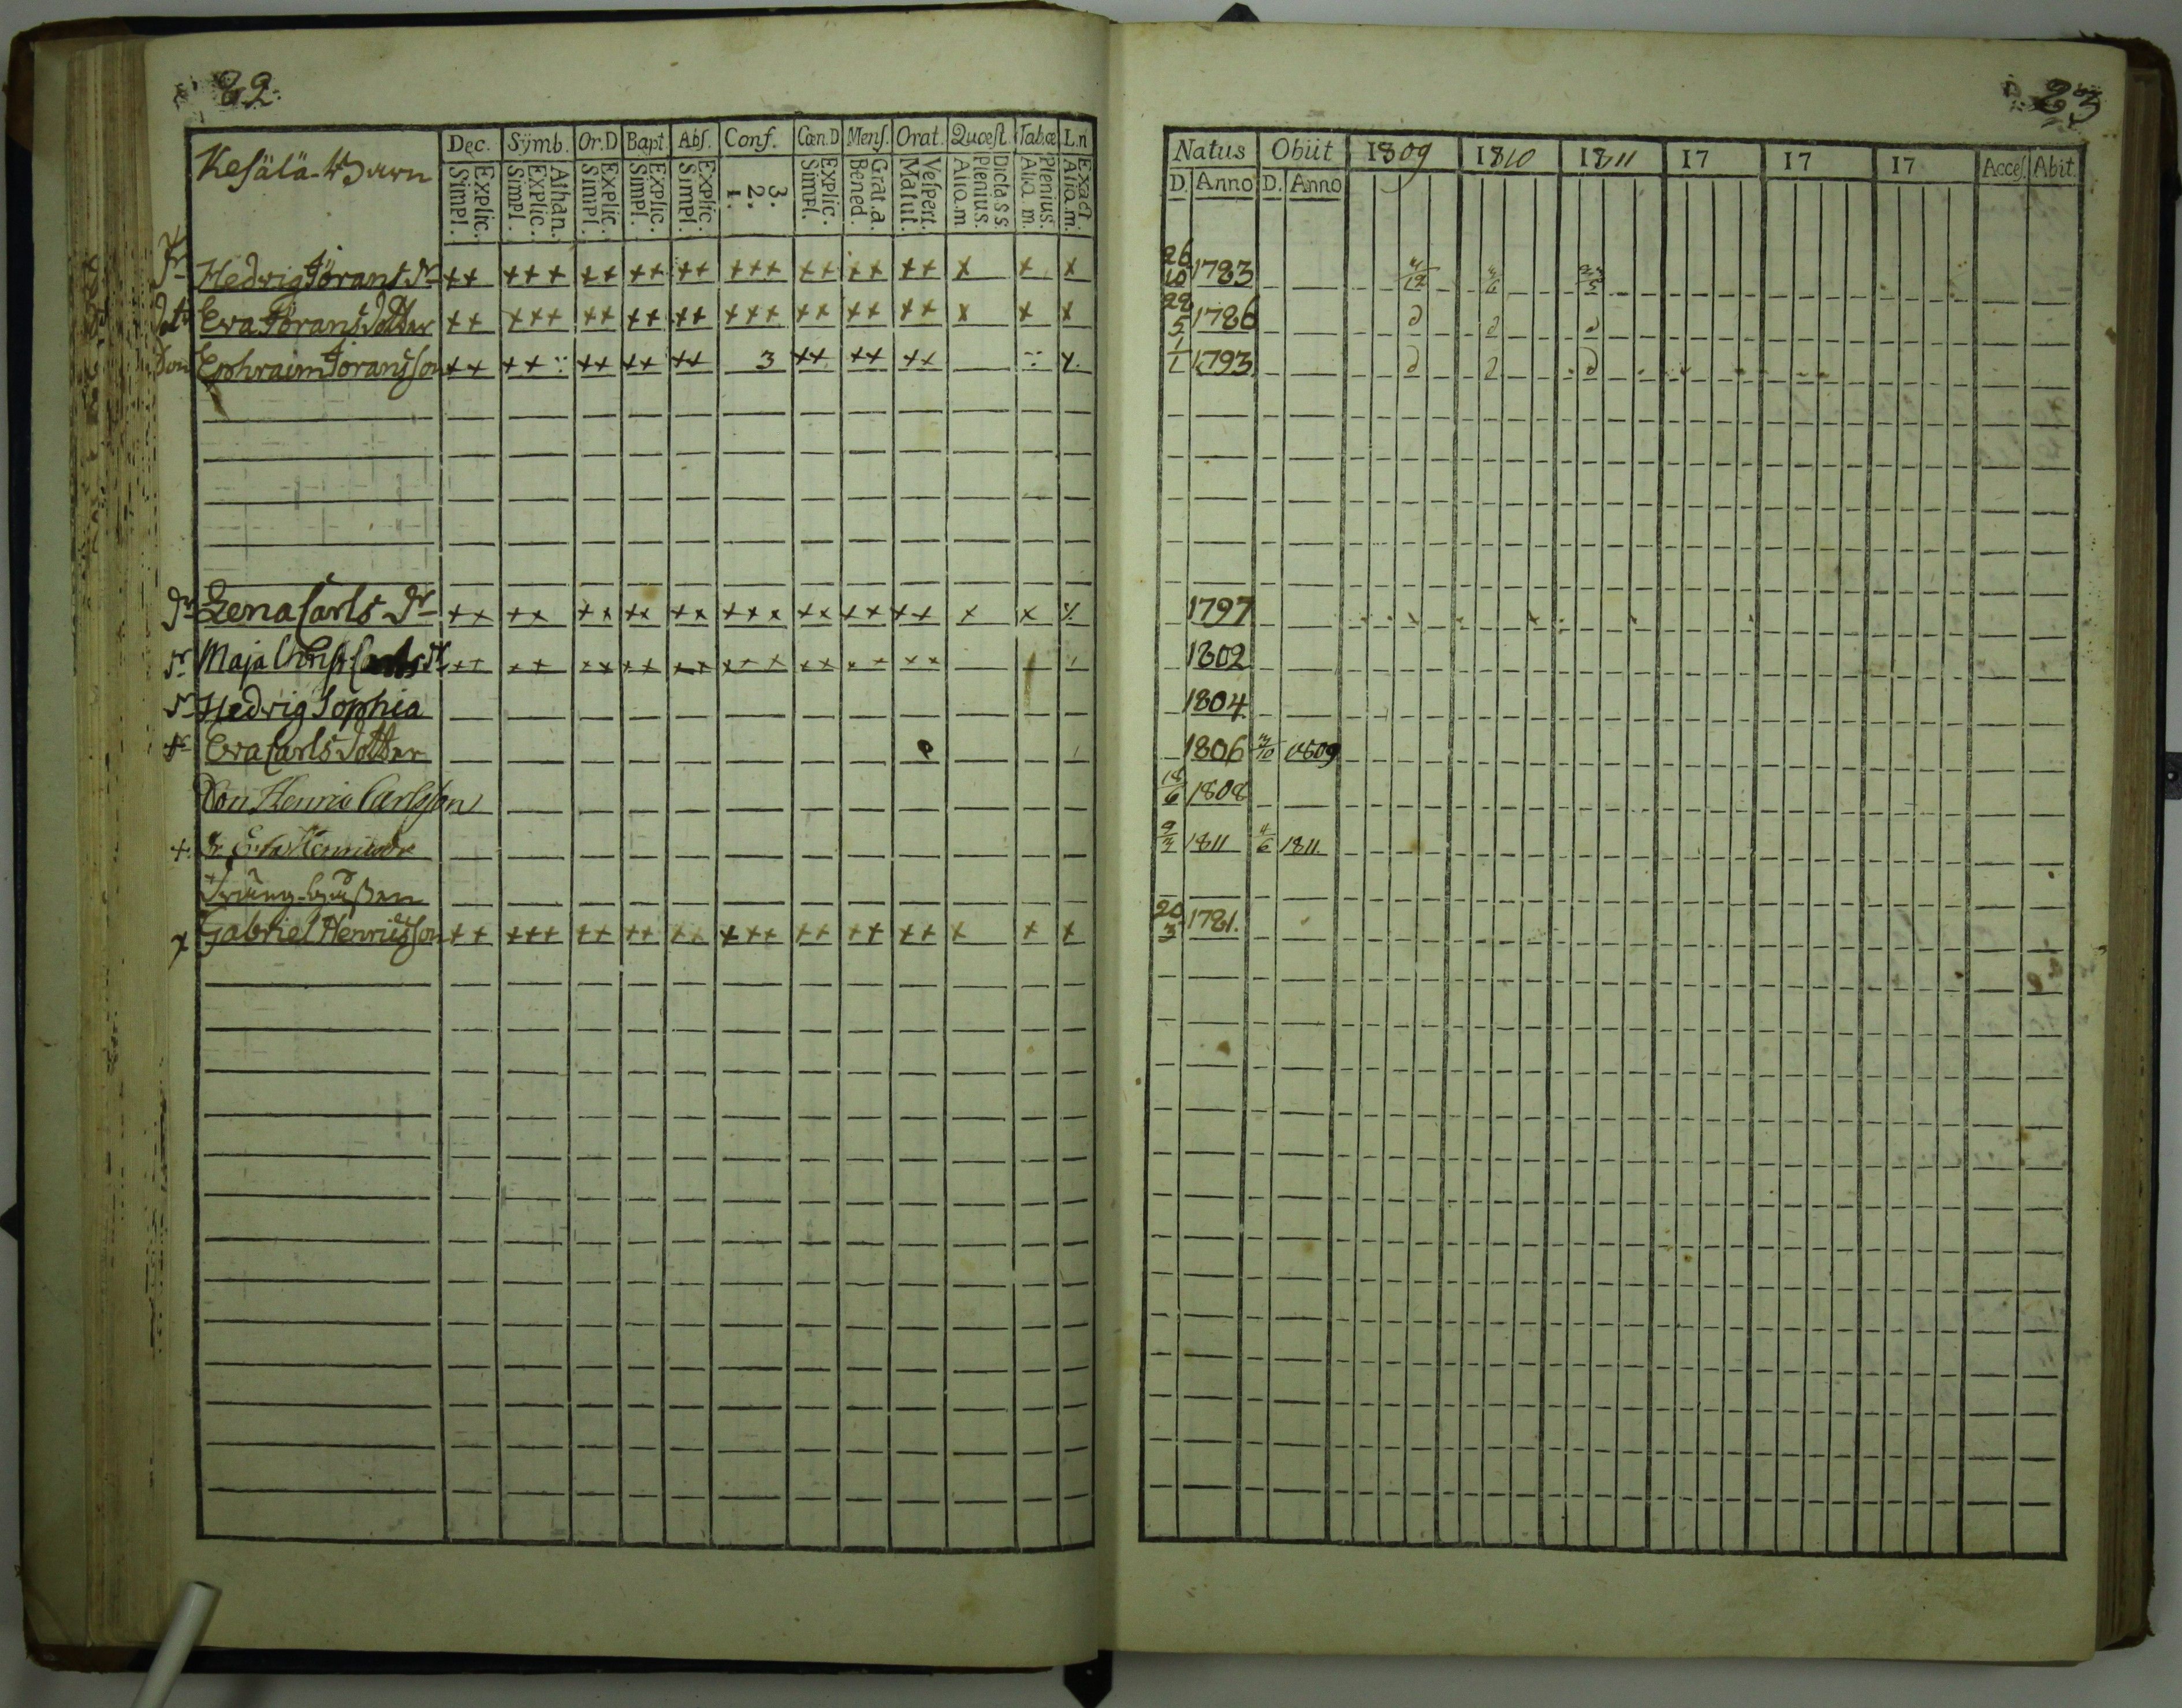 22
Dec. Sÿmb. Or.D Bapt. Abſ. Conf. Cœn.D Menſ. Orat. Quœſt. Tabœ L.n
Simpl. Explic. Simpl. Explic. Athan. Simpl. Explic. Simpl. Explic. Simpl. Explic. 1. 2. 3. Simpl. Explic. Bened. Grat.a. Matut. Veſpert. Aliq.m Plenius. Dicta.s s. Aliq.m. Plenius. Aliq.m. Exact.
Keſälä
Dr Hedvig Jörans dr ++ +++ ++ ++ ++ +++ ++ ++ ++ x x x
Dotr Eva Jörans dotter ++ +++ ++ ++ ++ +++ ++ ++ ++ x x x
Son Ephraim Jöransson ++ ++ ∵ ++ ++ ++ 3 ++ ++ ++ x
Dr Lena Carls Dr ++ ++ ++ ++ ++ +++ ++ ++ ++ x x
Dr Maja Christ Carls dr ++ ++ ++ ++ ++ +++ ++ ++ ++
Dr Hedvig Sophia
Eva Carls dotter
Son Henric Carlsson
+ Dr
x Gabriel Henricsson ++ +++ ++ ++ ++ +++ ++ ++ ++ x x x
23
Natus Obiit 1809 1810 1811 17 17 17 Acceſ. Abit.
D. Anno D. Anno
26/10 1783 4/6
28/5 1786 d d d
1/1 1793 d d d
1797
1802
1804
1806 3/10 1809
18/6 1808
9/3 1811 4/6 1811.
20/3 1781.